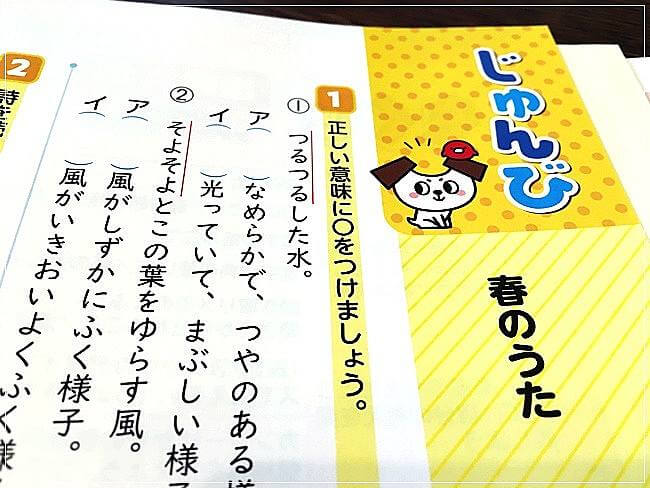 じゅんび
春のうた
1 正しい意味に○をつけましょう。
① つるつるした水。
ア ( ) なめらかで、つやのある様
イ ( ) 光っていて、まぶしい様子
② そよそよとこの葉をゆらす風。
ア ( ) 風がしずかにふく様子。
イ ( ) 風がいきおいよくふく様
2